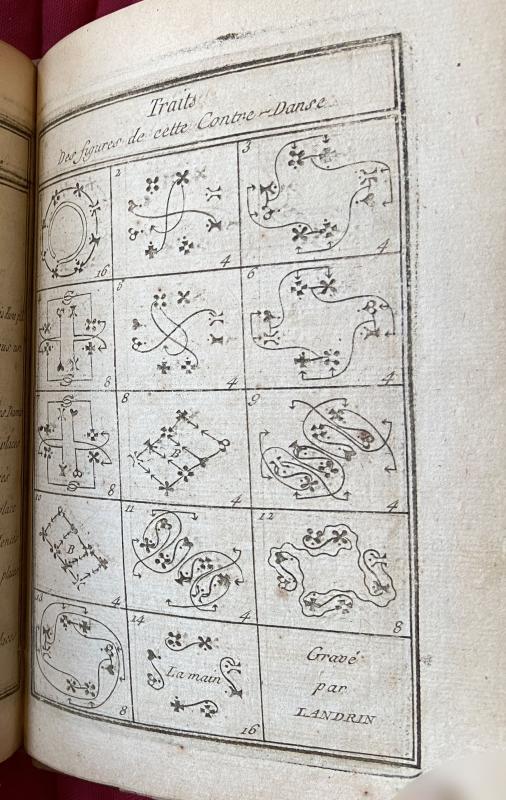 Traits
Des figures de cette Contre-Danse
16
2
4
3
4
8
5
4
6
4
7
8
8
B
4
9
4
10
B
4
11
4
12
8
13
8
14
La main
16
Gravé
par
LANDRIN